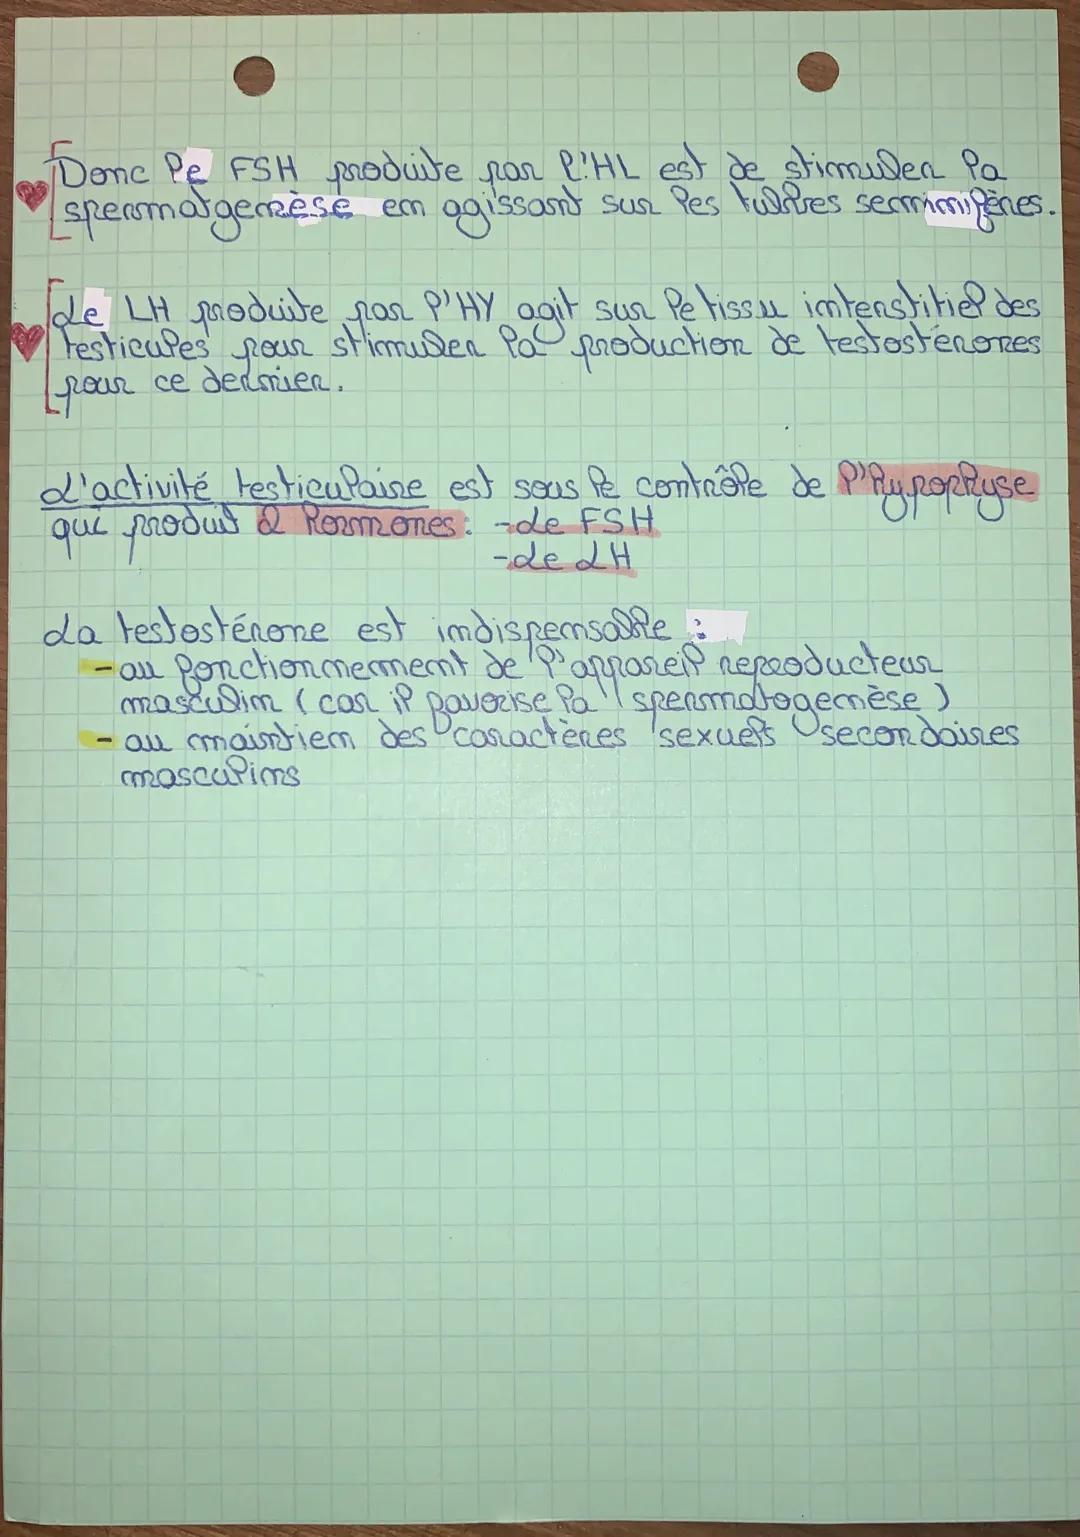 Donc le FSH produite par l'HL est de stimuler la
spermatgenèse en agissant sur les tubbes séminifères.
Le LH produite par l'HY agit sur le tissu interstitiel des
testicules pour stimuler la production de testosterones
pour ce dernier.
L'activité testiculaire est sous le contrôle de l'hypophyse
qui produit 2 hormones: - Le FSH
- Le LH
La testostérone est indispensable :
- au fonctionnement de l'appareil reproducteur
masculin ( car il favorise la spermatogenèse )
- au maintien des caractères sexuels secondaires
masculins